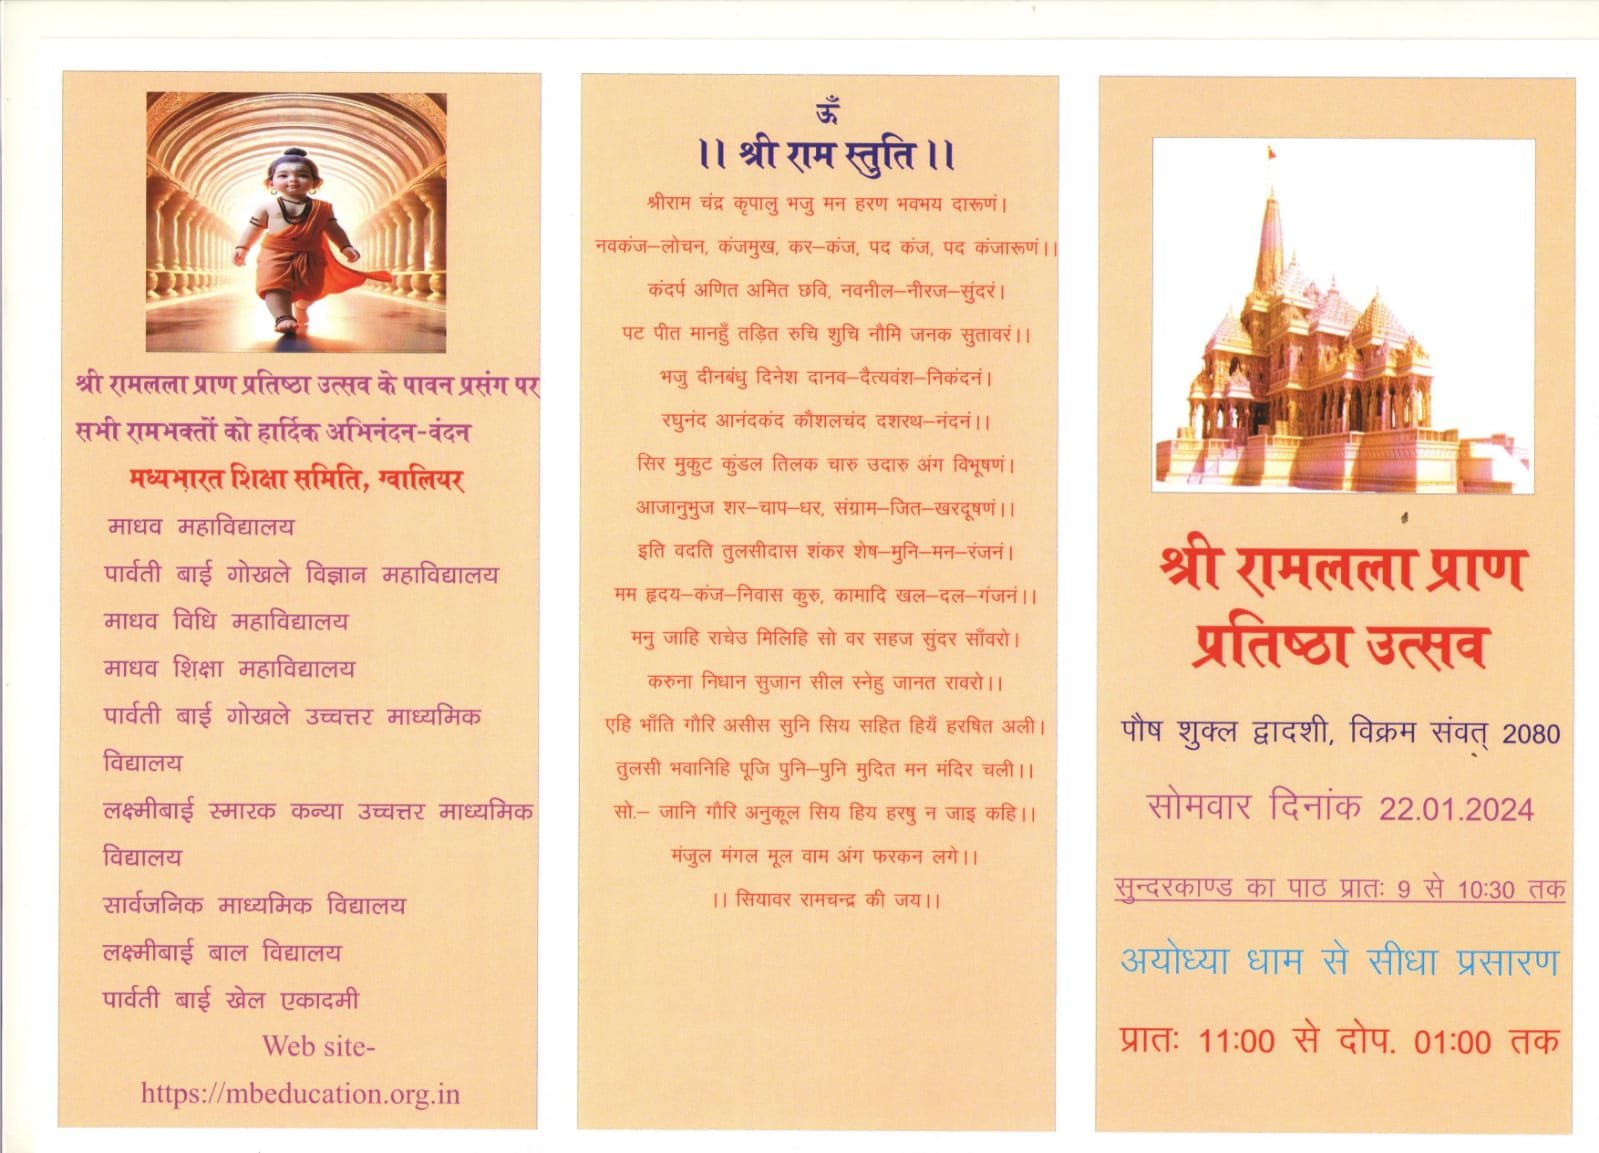 श्री रामलला प्राण प्रतिष्ठा उत्सव के पावन प्रसंग पर
सभी रामभक्तों को हार्दिक अभिनंदन-वंदन
मध्यभारत शिक्षा समिति, ग्वालियर
माधव महाविद्यालय
पार्वती बाई गोखले विज्ञान महाविद्यालय
माधव विधि महाविद्यालय
माधव शिक्षा महाविद्यालय
पार्वती बाई गोखले उच्चत्तर माध्यमिक
विद्यालय
लक्ष्मीबाई स्मारक कन्या उच्चत्तर माध्यमिक
विद्यालय
सार्वजनिक माध्यमिक विद्यालय
लक्ष्मीबाई बाल विद्यालय
पार्वती बाई खेल एकादमी
Web site-
https://mbeducation.org.in
ऊँ
।। श्री राम स्तुति ।।
श्रीराम चंद्र कृपालु भजु मन हरण भवभय दारूणं।
नवकंज–लोचन, कंजमुख, कर–कंज, पद कंज, पद कंजारूणं।।
कंदर्प अणित अमित छवि, नवनील–नीरज–सुंदरं।
पट पीत मानहुँ तड़ित रुचि शुचि नौमि जनक सुतावरं।।
भजु दीनबंधु दिनेश दानव–दैत्यवंश–निकंदनं।
रघुनंद आनंदकंद कौशलचंद दशरथ–नंदनं।।
सिर मुकुट कुंडल तिलक चारु उदारु अंग विभूषणं।
आजानुभुज शर–चाप–धर, संग्राम–जित–खरदूषणं।।
इति वदति तुलसीदास शंकर शेष–मुनि–मन–रंजनं।
मम हृदय–कंज–निवास कुरु, कामादि खल–दल–गंजनं।।
मनु जाहि राचेउ मिलिहि सो वर सहज सुंदर साँवरो।
करुना निधान सुजान सील स्नेहु जानत रावरो।।
एहि भाँति गौरि असीस सुनि सिय सहित हियँ हरषित अली।
तुलसी भवानिहि पूजि पुनि–पुनि मुदित मन मंदिर चली।।
सो.– जानि गौरि अनुकूल सिय हिय हरषु न जाइ कहि।।
मंजुल मंगल मूल वाम अंग फरकन लगे।।
।। सियावर रामचन्द्र की जय।।
श्री रामलला प्राण
प्रतिष्ठा उत्सव
पौष शुक्ल द्वादशी, विक्रम संवत् 2080
सोमवार दिनांक 22.01.2024
सुन्दरकाण्ड का पाठ प्रातः 9 से 10:30 तक
अयोध्या धाम से सीधा प्रसारण
प्रातः 11:00 से दोप. 01:00 तक